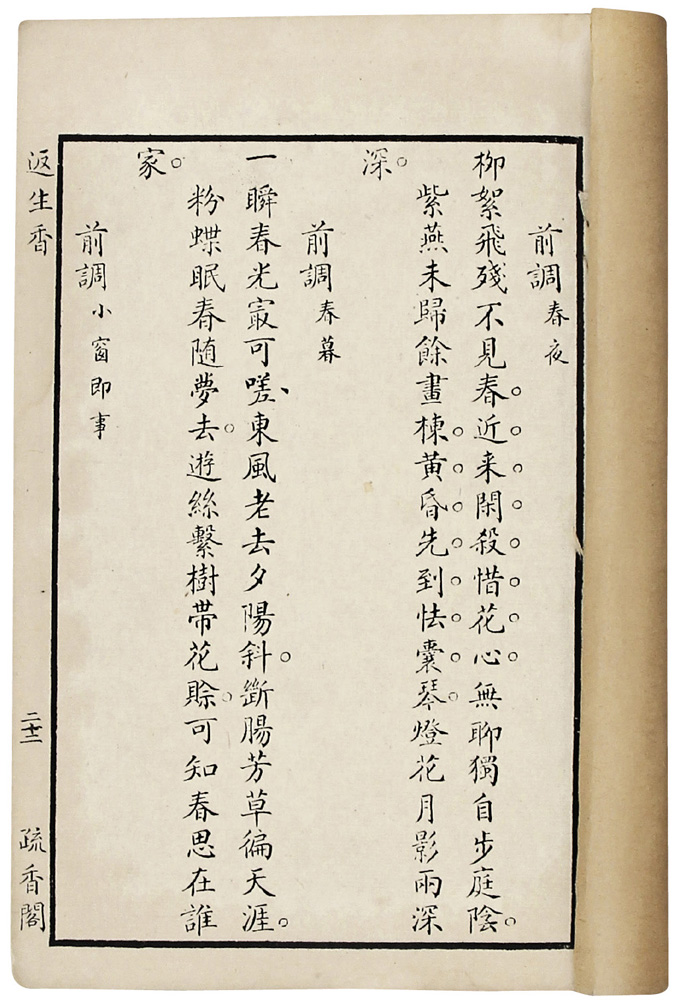 前調春夜
柳絮飛殘不見春。近来閑殺惜花心無聊獨自步庭陰。
紫燕未歸餘畫棟黃昏先到怯囊琴。燈花月影兩深
深。
前調春暮
一瞬春光最可嗟、東風老去夕陽斜。斷腸芳草徧天涯。
粉蝶眠春随夢去。遊絲繫樹帶花賒。可知春思在誰
家。
前調小窗即事
返生香
二十二
疏香閣